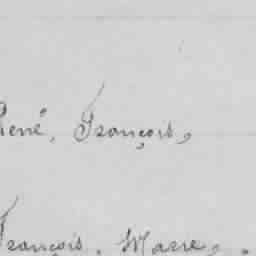 René, François,
François, Marie,